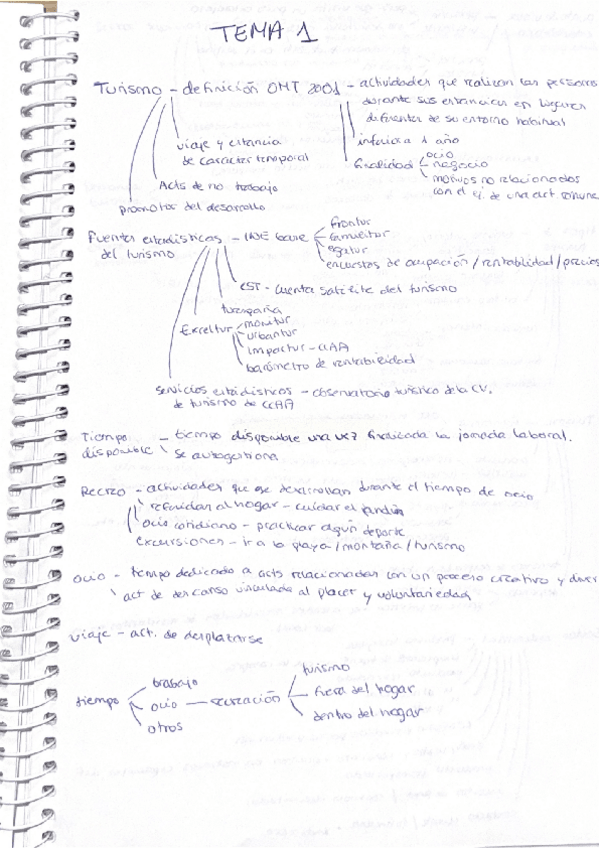 TEMA 1
Turismo - definición OMT 2001 - actividades que realizan las personas
durante sus estancias en lugares
diferentes de su entorno habitual
viaje y estancia
de caracter temporal
inferior a 1 año
finalidad
ocio
negocio
motivos no relacionados
con el ej. de una act.
Acts de no trabajo
promotor del desarrollo
Fuentes estadísticas - INE
del turismo
frontur
famuitur
egatur
encuestas de ocupación / rentabilidad / precios
CST - cuenta satélite del turismo
Exceltur
monitur
urbantur
impactur - CCAA
barómetro de rentabilidad
servicios estadísticos - observatorio turístico de la CV.
de turismo de CCAA
Tiempo - tiempo disponible una vez finalizada la jornada laboral.
disponible
se autogestiona
Recreo - actividades que se desarrollan durante el tiempo de ocio
referidas al hogar - cuidar el jardín
ocio cotidiano - practicar algún deporte
excursiones - ir a la playa / montaña / turismo
ocio - tiempo dedicado a acts relacionadas con un proceso creativo y diver
act de descanso vinculada al placer y voluntariedad
viaje - act. de desplazarse
tiempo
trabajo
ocio - recreación
otros
turismo
fuera del hogar
dentro del hogar